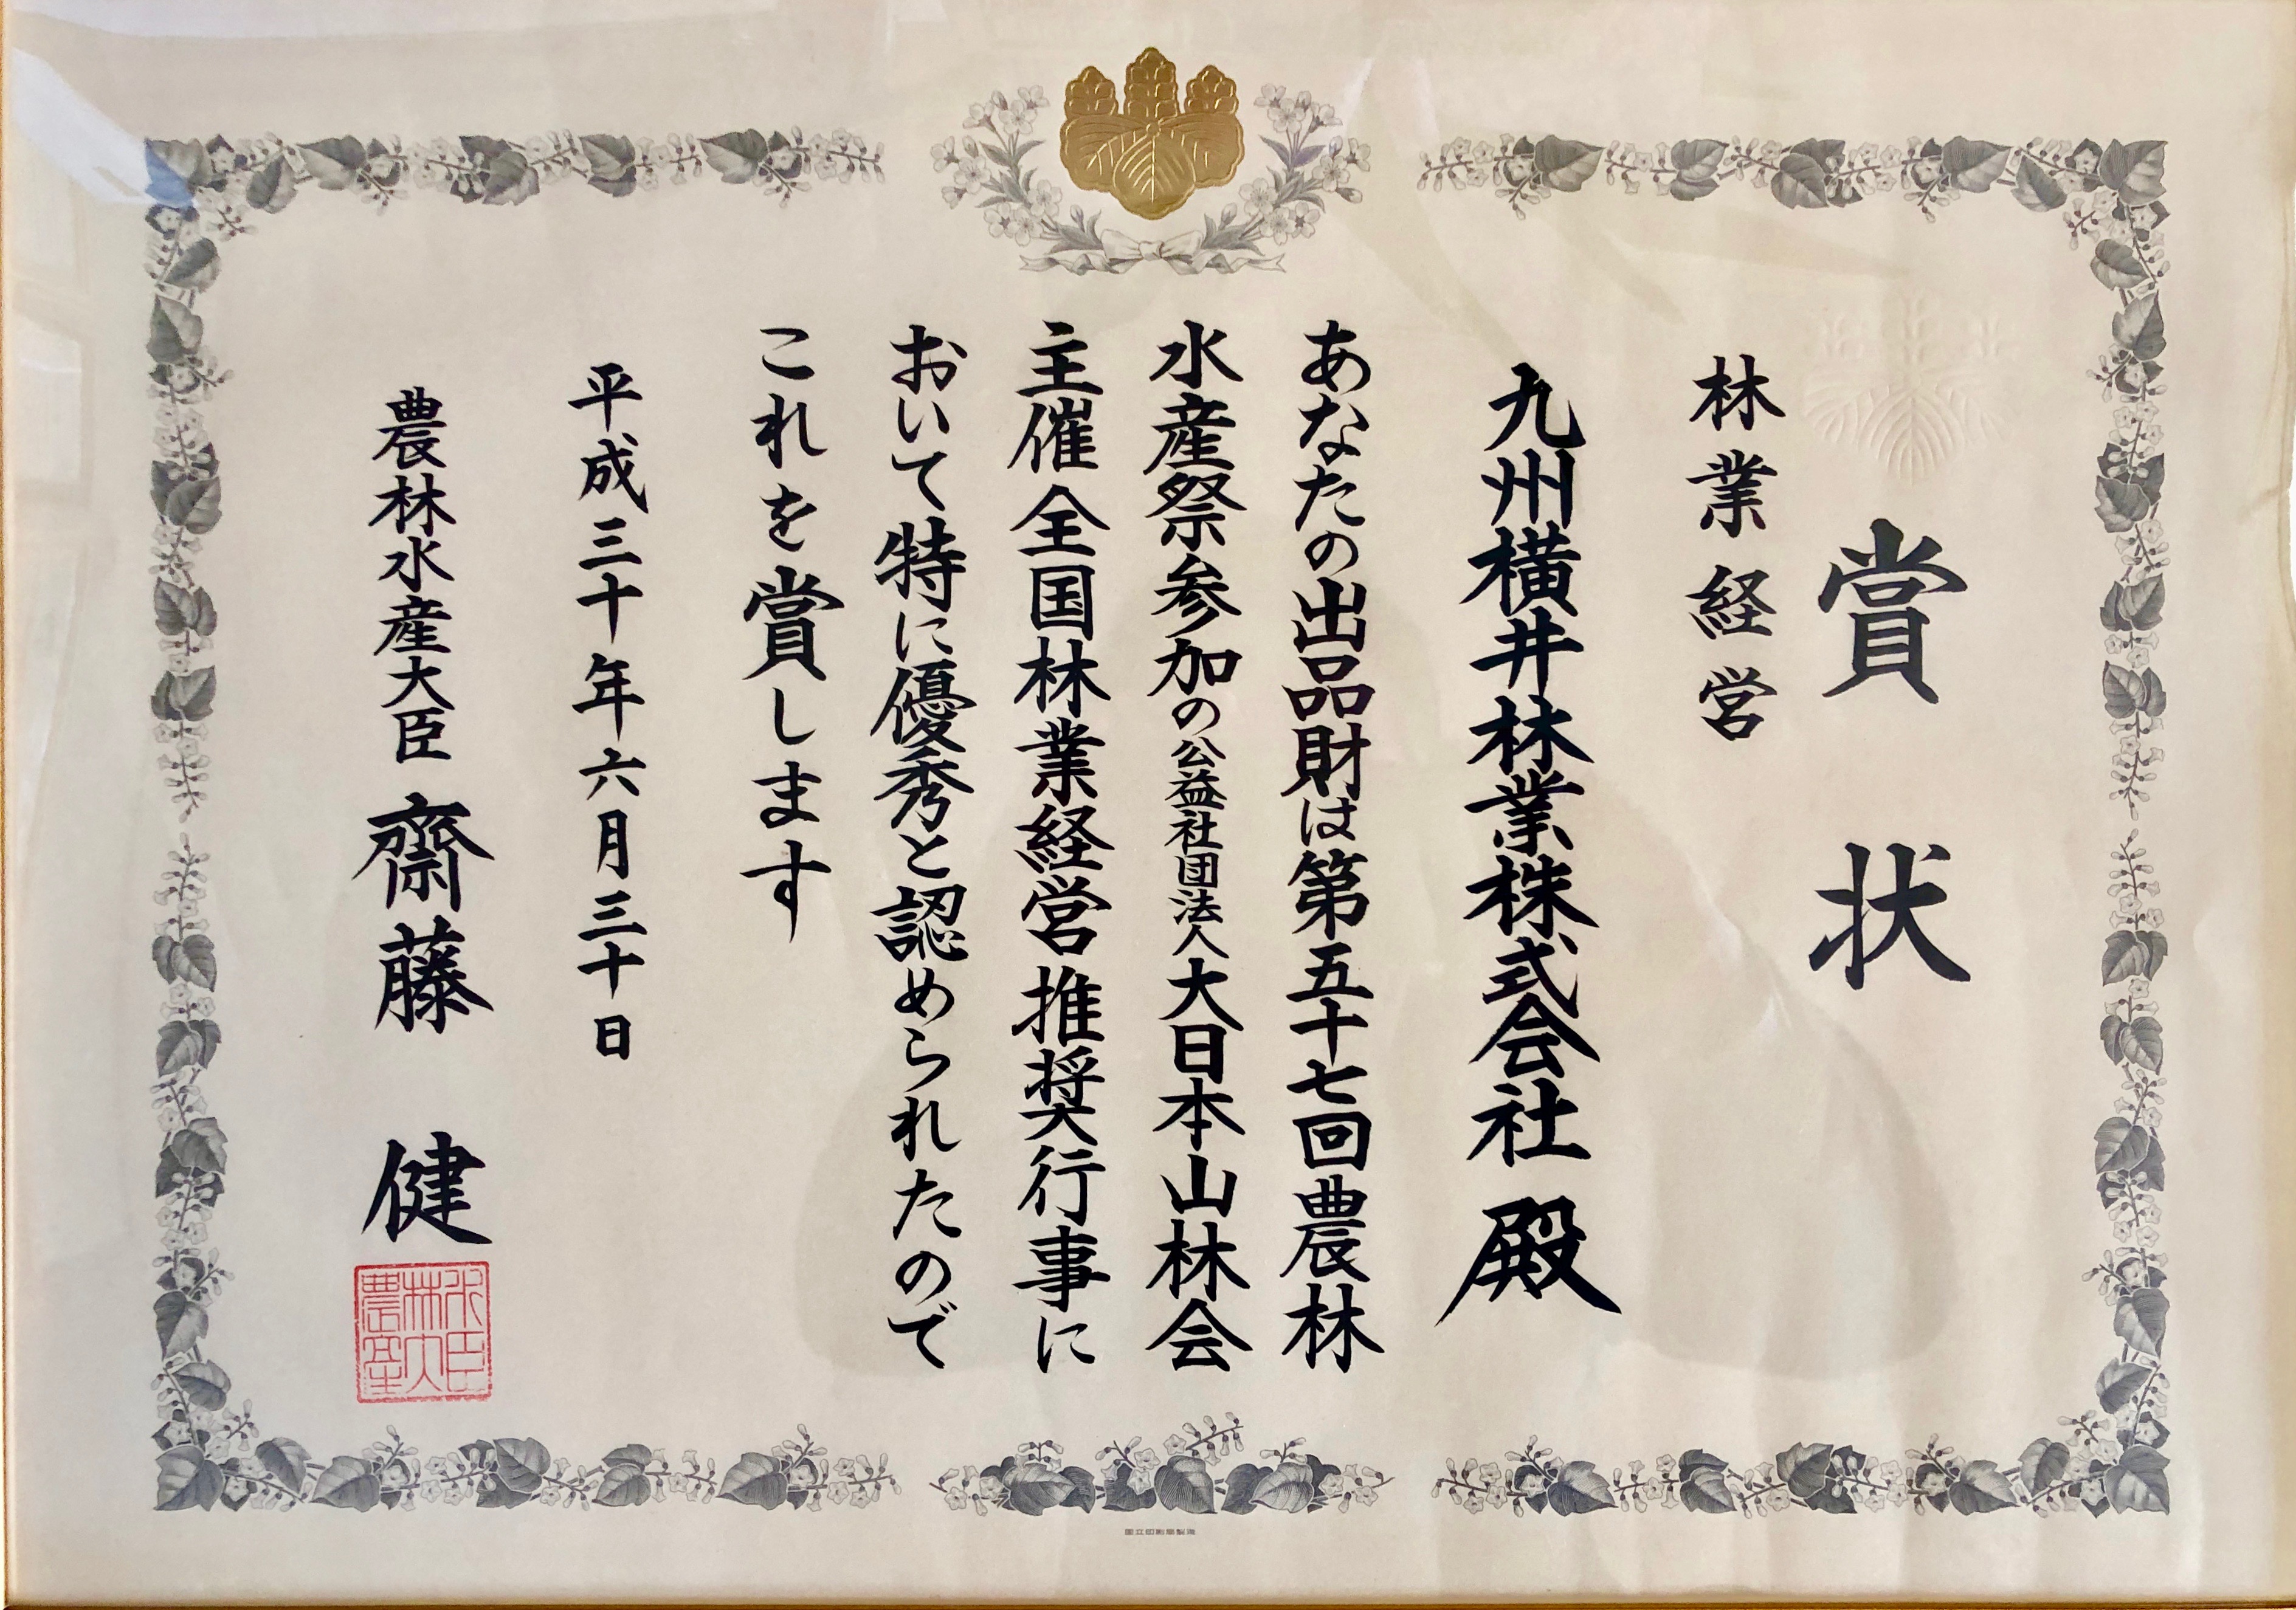 賞状
林業経営
九州横井林業株式会社 殿
あなたの出品財は第五十七回農林
水産祭参加の公益社団法人大日本山林会
主催全国林業経営推奨行事に
おいて特に優秀と認められたので
これを賞します
平成三十年六月三十日
農林水産大臣 齋藤 健
農林水産大臣
国立印刷局製造